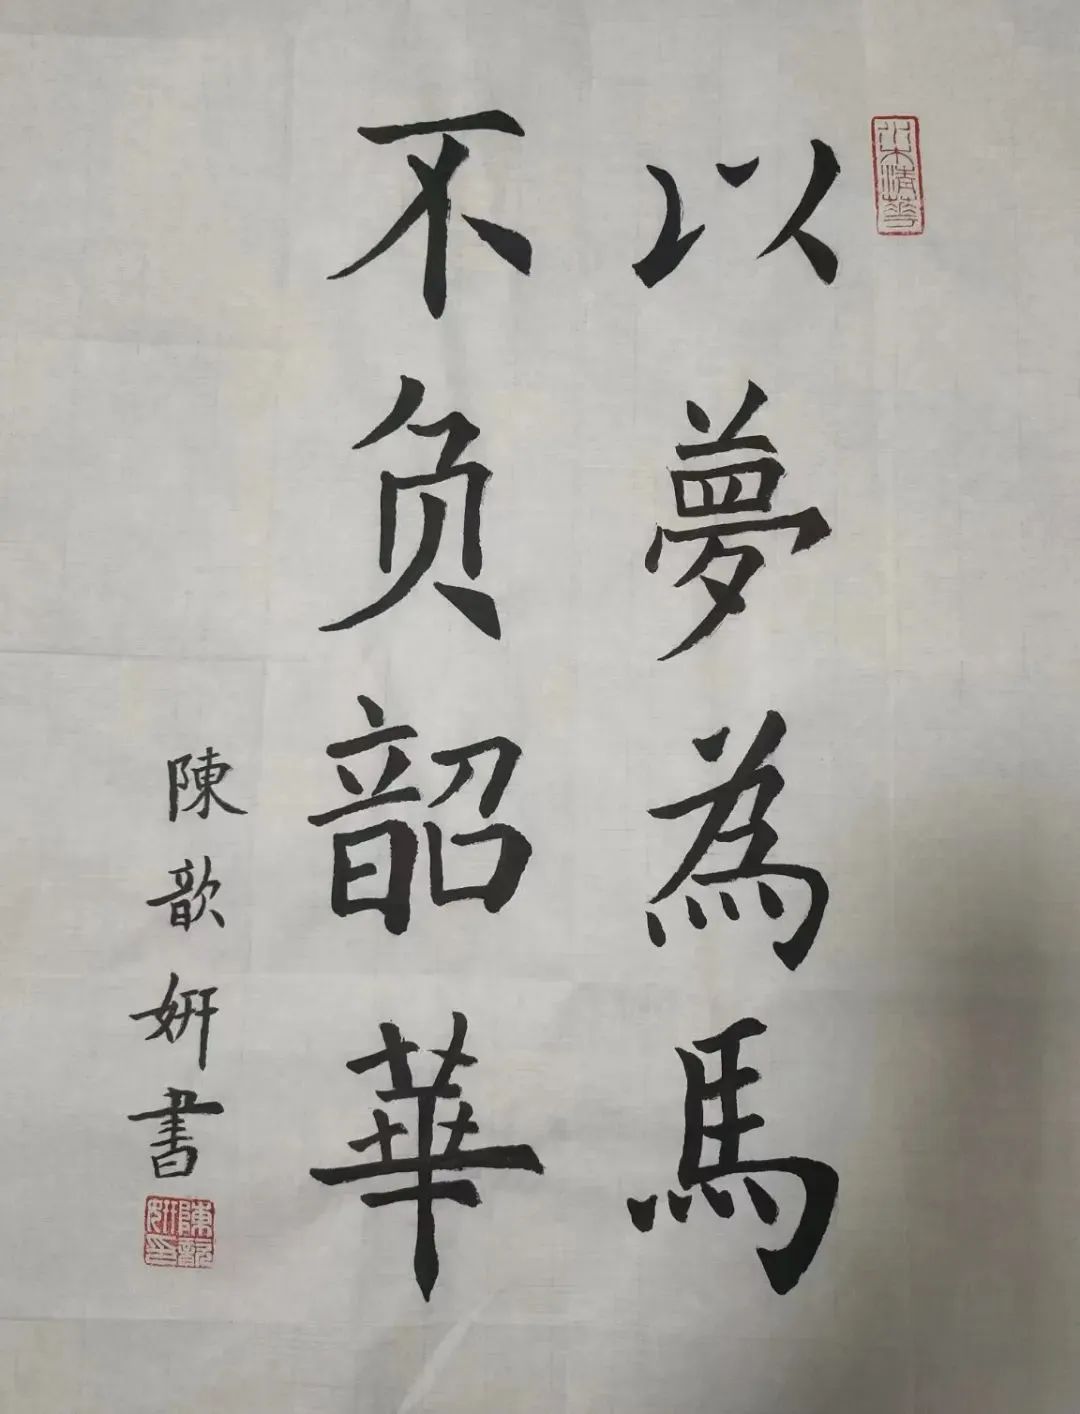 水木清華
以夢為馬
不负韶華
陳歆妍書
陳歆妍印